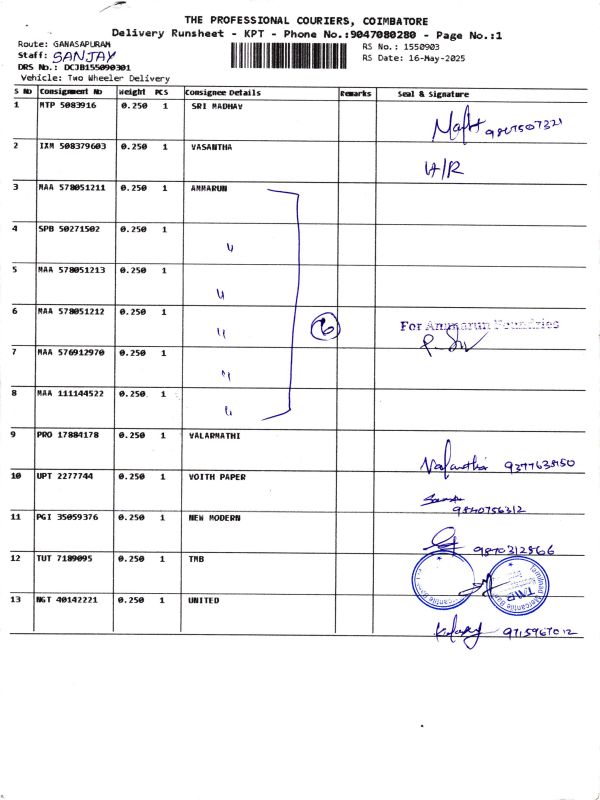 THE PROFESSIONAL COURIERS, COIMBATORE
Delivery Runsheet - KPT - Phone No.:9047080280 - Page No.:1
Route: GANASAPURAM
RS No.: 1550903
Staff: SANJAY
RS Date: 16-May-2025
DRS No.: DCJB155090301
Vehicle: Two Wheeler Delivery
S No Consignment No Weight PCS Consignee Details Remarks Seal & Signature
1 MTP 5083916 0.250 1 SRI MADHAV
2 IXM 508379603 0.250 1 VASANTHA
3 MAA 578051211 0.250 1 AMMARUN
4 SPB 50271502 0.250 1 "
5 MAA 578051213 0.250 1 "
6 MAA 578051212 0.250 1 " 6 For Ammarun Foundries
7 MAA 576912970 0.250 1 "
8 MAA 111144522 0.250 1 "
9 PRO 17884178 0.250 1 VALARMATHI
10 UPT 2277744 0.250 1 VOITH PAPER
9840756312
11 PGI 35059376 0.250 1 NEW MODERN
9840312866
12 TUT 7189095 0.250 1 TMB
13 NGT 40142221 0.250 1 UNITED
9715967012